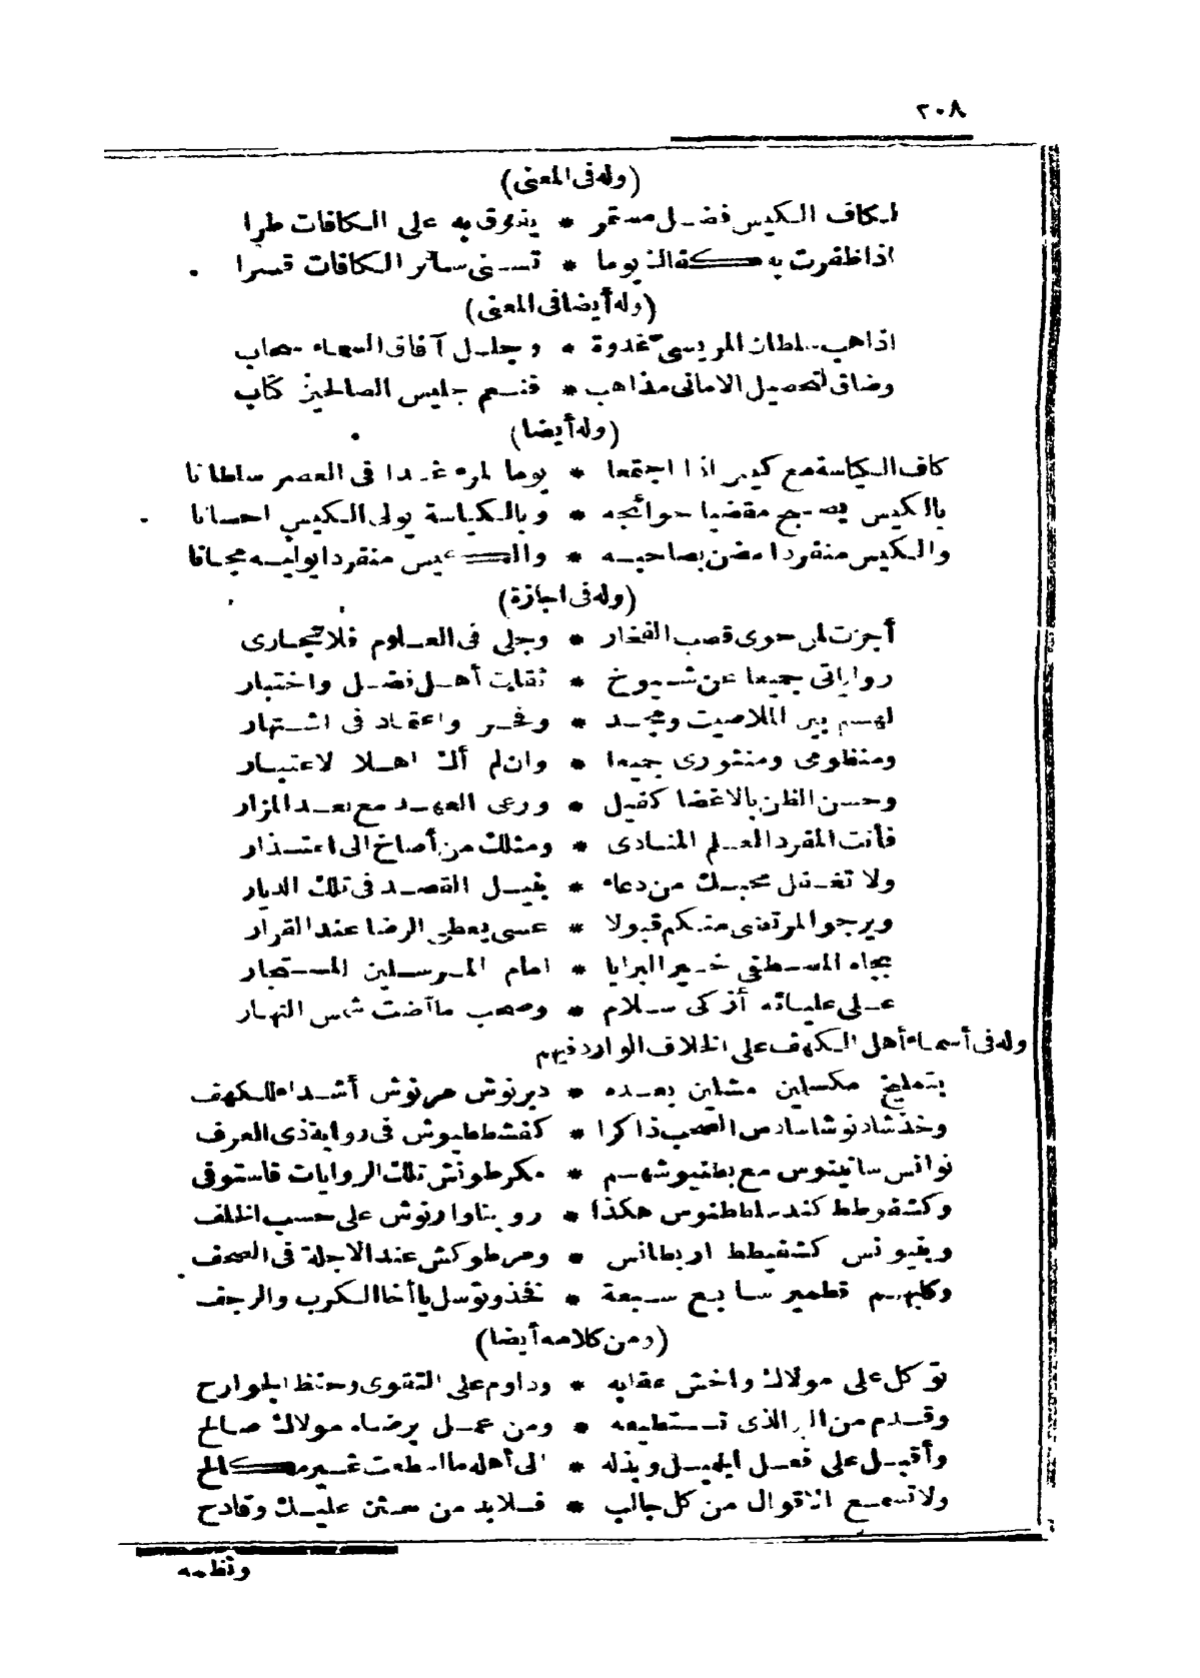 ٢٠٨
(وله فى المعنى)
لكاف الكيس فضل مستمر * يفوق به على الكافات طرا
اذا ظفرت به كف الذ يوما * تسنى سائر الكافات قسرا
(وله أيضا فى المعنى)
اذا هب سلطان المريسى غدوة * وجلل آفاق السماء سحاب
وضاق لتحصيل الامانى مذاهب * فنعم جليس الصالحين كتاب
(وله أيضا)
كاف الكياسة مع كيس اذا اجتمعا * يوما لمرء غدا فى العصر سلطانا
بالكيس يصبح مقضيا حوائجه * وبالكياسة يولى الكيس احسانا
والكيس منفردا مضن بصاحبه * والكيس منفردا يوليه مجانا
(وله فى اجازة)
أجزت لمن حوى قصب الفخار * وجلى فى العلوم فلا يجارى
رواياتى جميعا عن شيوخ * ثقات أهل فضل واختبار
لهم بين الملا صيت ومجد * وفخر واعتقاد فى اشتهار
ومنظومى ومنثورى جميعا * وان لم أك اهلا لاعتبار
وحسن الظن بالاغضا كفيل * ورعى العهد مع بعد المزار
فأنت المفرد العلم المنادى * ومثلك من أصاخ الى اعتذار
ولا تغفل محبك من دعاء * بنيل القصد فى تلك الديار
ويرجو المرتضى منكم قبولا * عسى يعطى الرضا عند القرار
بجاه المصطفى خير البرايا * امام المرسلين المستجار
على عليائه أزكى سلام * وصحب ما آضت شمس النهار
وله فى أسماء أهل الكهف على الخلاف الوارد فيهم
بتمليخ مكسلين مشلين بعده * دبرنوش مرنوش أشداء للكهف
وخذ شاد نوشا سادس الصحب ذاكرا * كفشططيوش فى رواية ذى العرف
نوانس سانينوس مع بطنيوشهم * مكرطونش تلك الروايات فاستوفى
وكشفوطط كندسلططنوس هكذا * روبنا وارنوش على حسب الخلف
وبنيونس كشفيطط اربطانس * ومرطوكش عند الاجلة فى الصحف
وكلبهم قطمير سابع سبعة * فخذ وتوسل يا أخا الكرب والرجف
(ومن كلامه أيضا)
توكل على مولاك واخش عقابه * وداوم على التقوى وحفظ الجوارح
وقدم من البر الذى تستطيعه * ومن عمل يرضاه مولاك صالح
وأقبل على فعل الجميل وبذله * الى أهله ما اسطعت غير مكالح
ولا تسمع الاقوال من كل جالب * فلا بد من مثن عليك وقادح
ونظمه